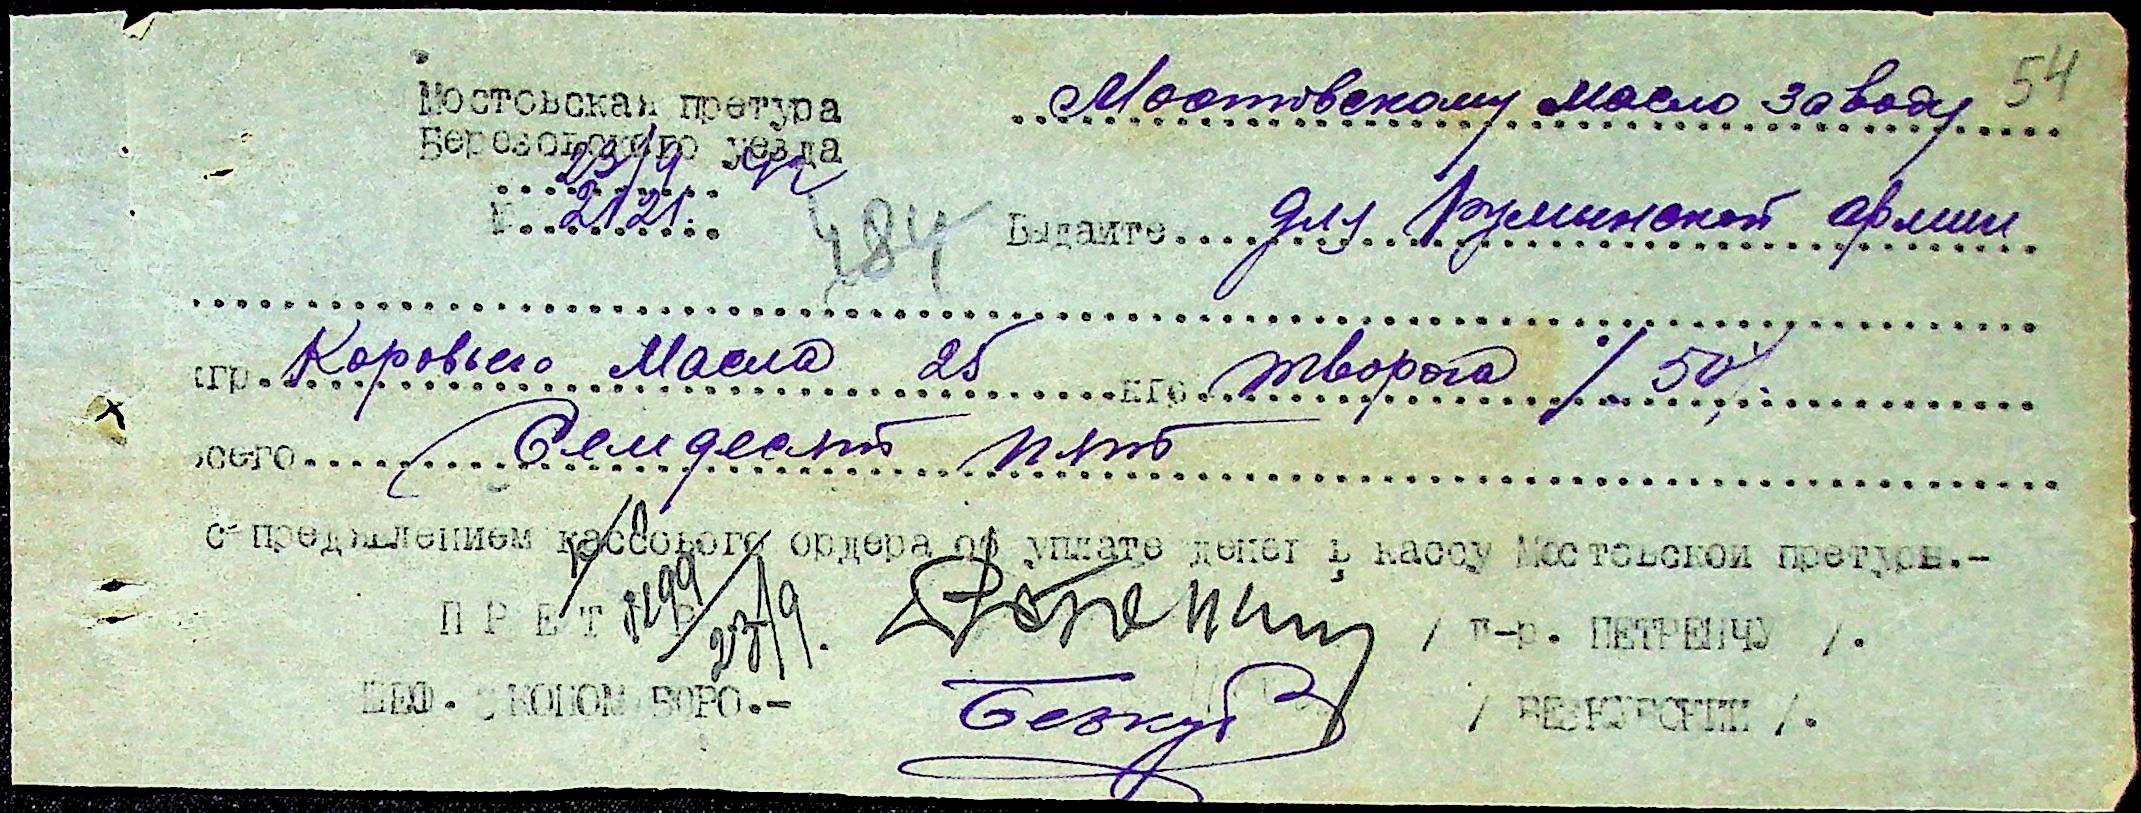 54
Мостовская претура
Березовского уезда
Мостовскому Масло заводу
23/9 42
№ 2121.
484
Выдаите для Румынской армии
кгр. Коровьего Масла 25 кгр творога /50/.
всего Семдесят пят
с пред'явлением кассового ордера об уплате денег в кассу Мостовской претуры.-
р/о
1199
23/9.
ПРЕТОР / П-р. ПЕТРЕНЧУ /.
ШЕФ. ЭКОНОМ БЮРО.- Безкуб / БЕЗКУБСКИЙ /.